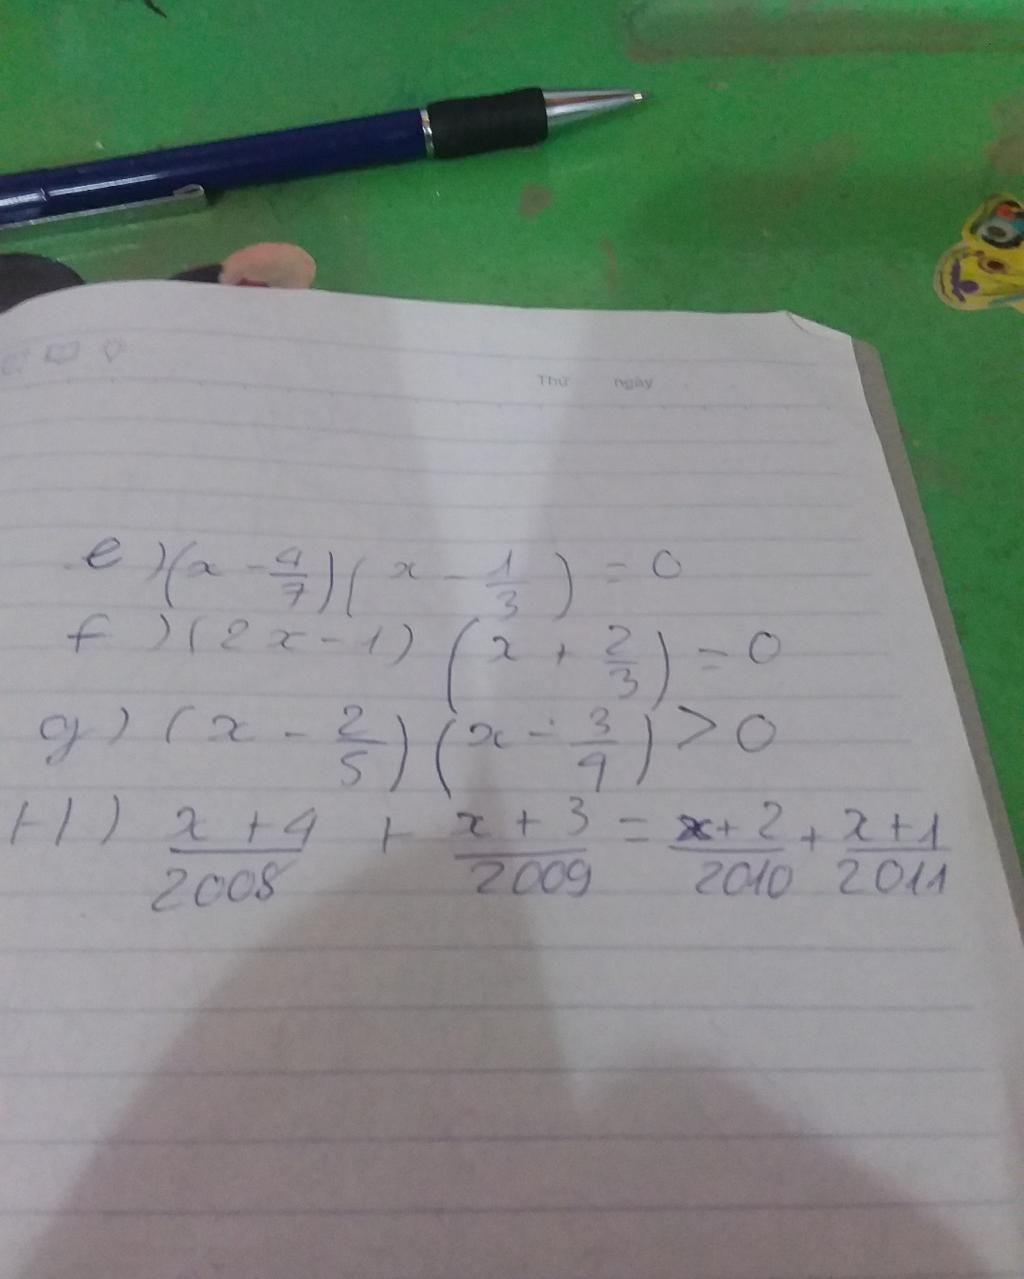 Thứ ngày
e) (x - 4/7)(x - 1/3) = 0
f) (2x - 1) (x + 2/3) = 0
g) (x - 2/5) (x - 3/4) > 0
H) x+4/2008 + x+3/2009 = x+2/2010 + x+1/2011